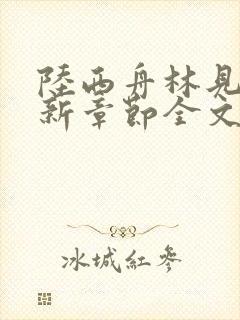 陸西舟林見
新章節全文
冰城紅參